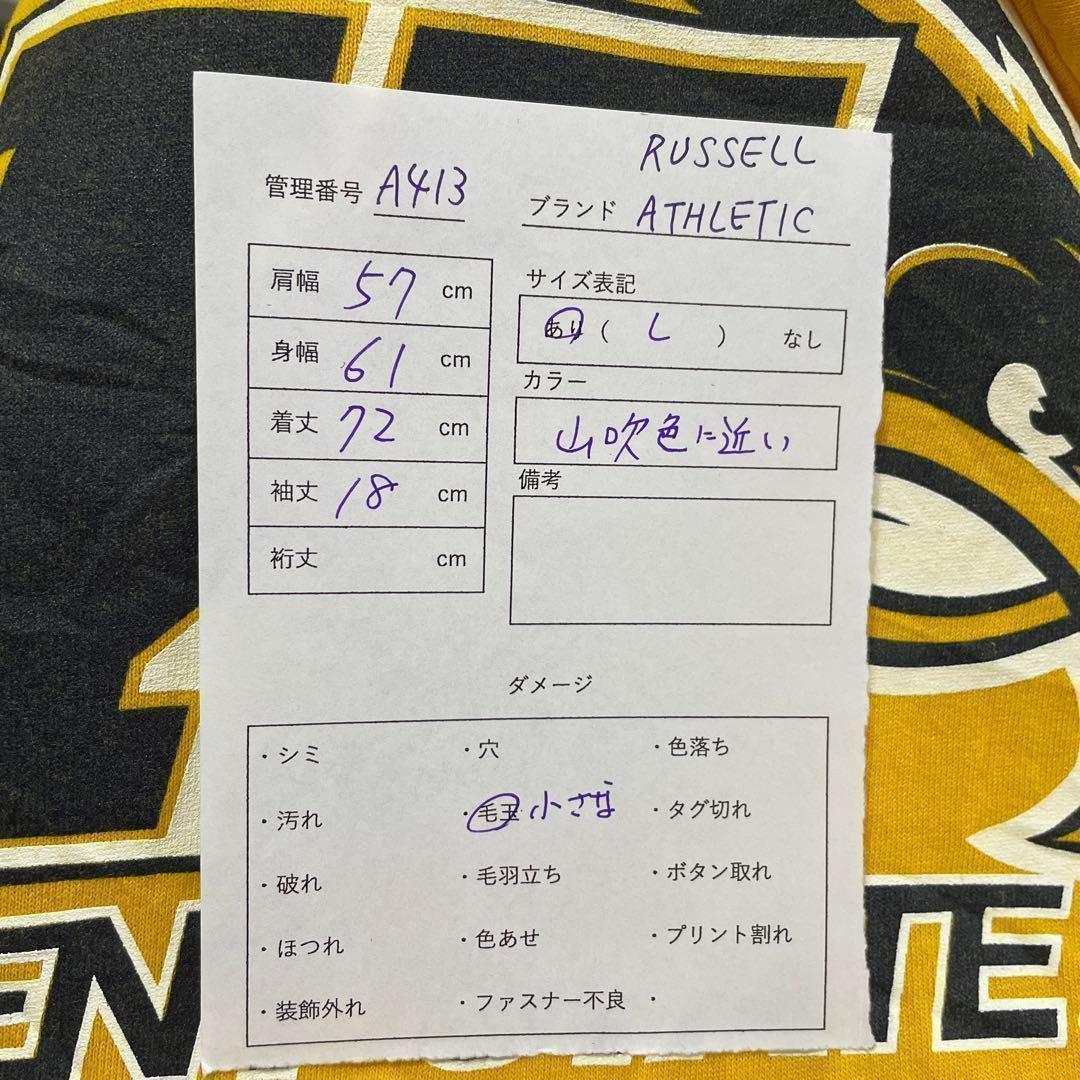 管理番号 A413
ブランド RUSSELL
ATHLETIC
肩幅 57 cm
身幅 61 cm
着丈 72 cm
袖丈 18 cm
裄丈 cm
サイズ表記
あり ( L ) なし
カラー
山吹色に近い
備考
ダメージ
・シミ ・穴 ・色落ち
・汚れ ・毛玉 小さな ・タグ切れ
・破れ ・毛羽立ち ・ボタン取れ
・ほつれ ・色あせ ・プリント割れ
・装飾外れ ・ファスナー不良 ・